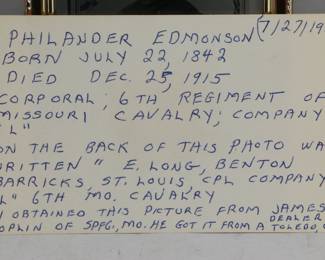 PHILANDER EDMONSON (7/27/19
BORN JULY 22, 1842
DIED DEC. 25, 1915
CORPORAL; 6TH REGIMENT OF
MISSOURI CAVALRY; COMPANY
"L"
ON THE BACK OF THIS PHOTO WA
WRITTEN " E. LONG, BENTON
BARRICKS, ST. LOUIS, CPL COMPANY
L" 6TH MO. CAVALRY
I OBTAINED THIS PICTURE FROM JAMES
DEALER
OPLIN OF SPFG., MO. HE GOT IT FROM A TOLEDO, O